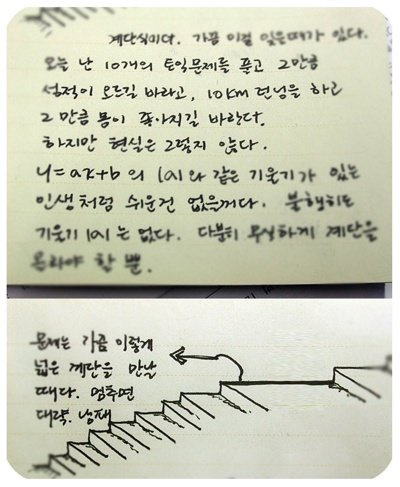 계단식이다. 가끔 이걸 잊을때가 있다.
오늘 난 10개의 토익문제를 풀고 그만큼
성적이 오르길 바라고, 10km 런닝을 하고
그만큼 몸이 좋아지길 바란다.
하지만 현실은 그렇지 않다.
y=ax+b 의 |a|와 같은 기울기가 있는
인생처럼 쉬운건 없을꺼다. 불행히도
기울기 |a|는 없다. 다분히 무심하게 계단을
올라야 할 뿐.
문제는 가끔 이렇게
넓은 계단을 만날
때다. 멈추면
대략. 낭패